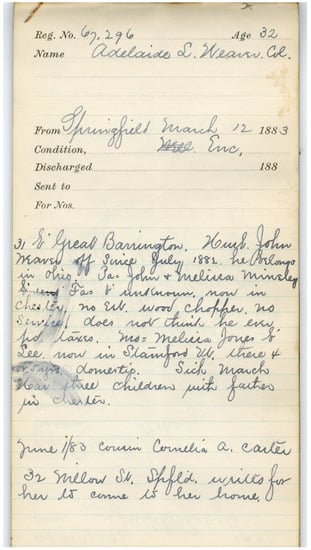 Reg. No. 67,296 Age 32
Name Adelaide L. Weaver. Col.
From Springfield March 12 1883
Condition, Enc,
Discharged 188
Sent to
For Nos.
31 b Great Barrington, Husb. John
Weaver off since July 1882. he belongs
in Ohio Pa= John & Melissa Minsley
Fa= b unknown, now in
Chester, no Est. wood chopper, no
service, does not think he ever
pd taxes. Mo= Melissa Jones b
Lee, now in Stamford Vt. there 4
or 5 yrs. domestic. Sick March
Has three children with father
in Chester.
June 1/83 cousin Cornelia A. Carter
32 Willow St. Spfld. writes for
her to come to her home.